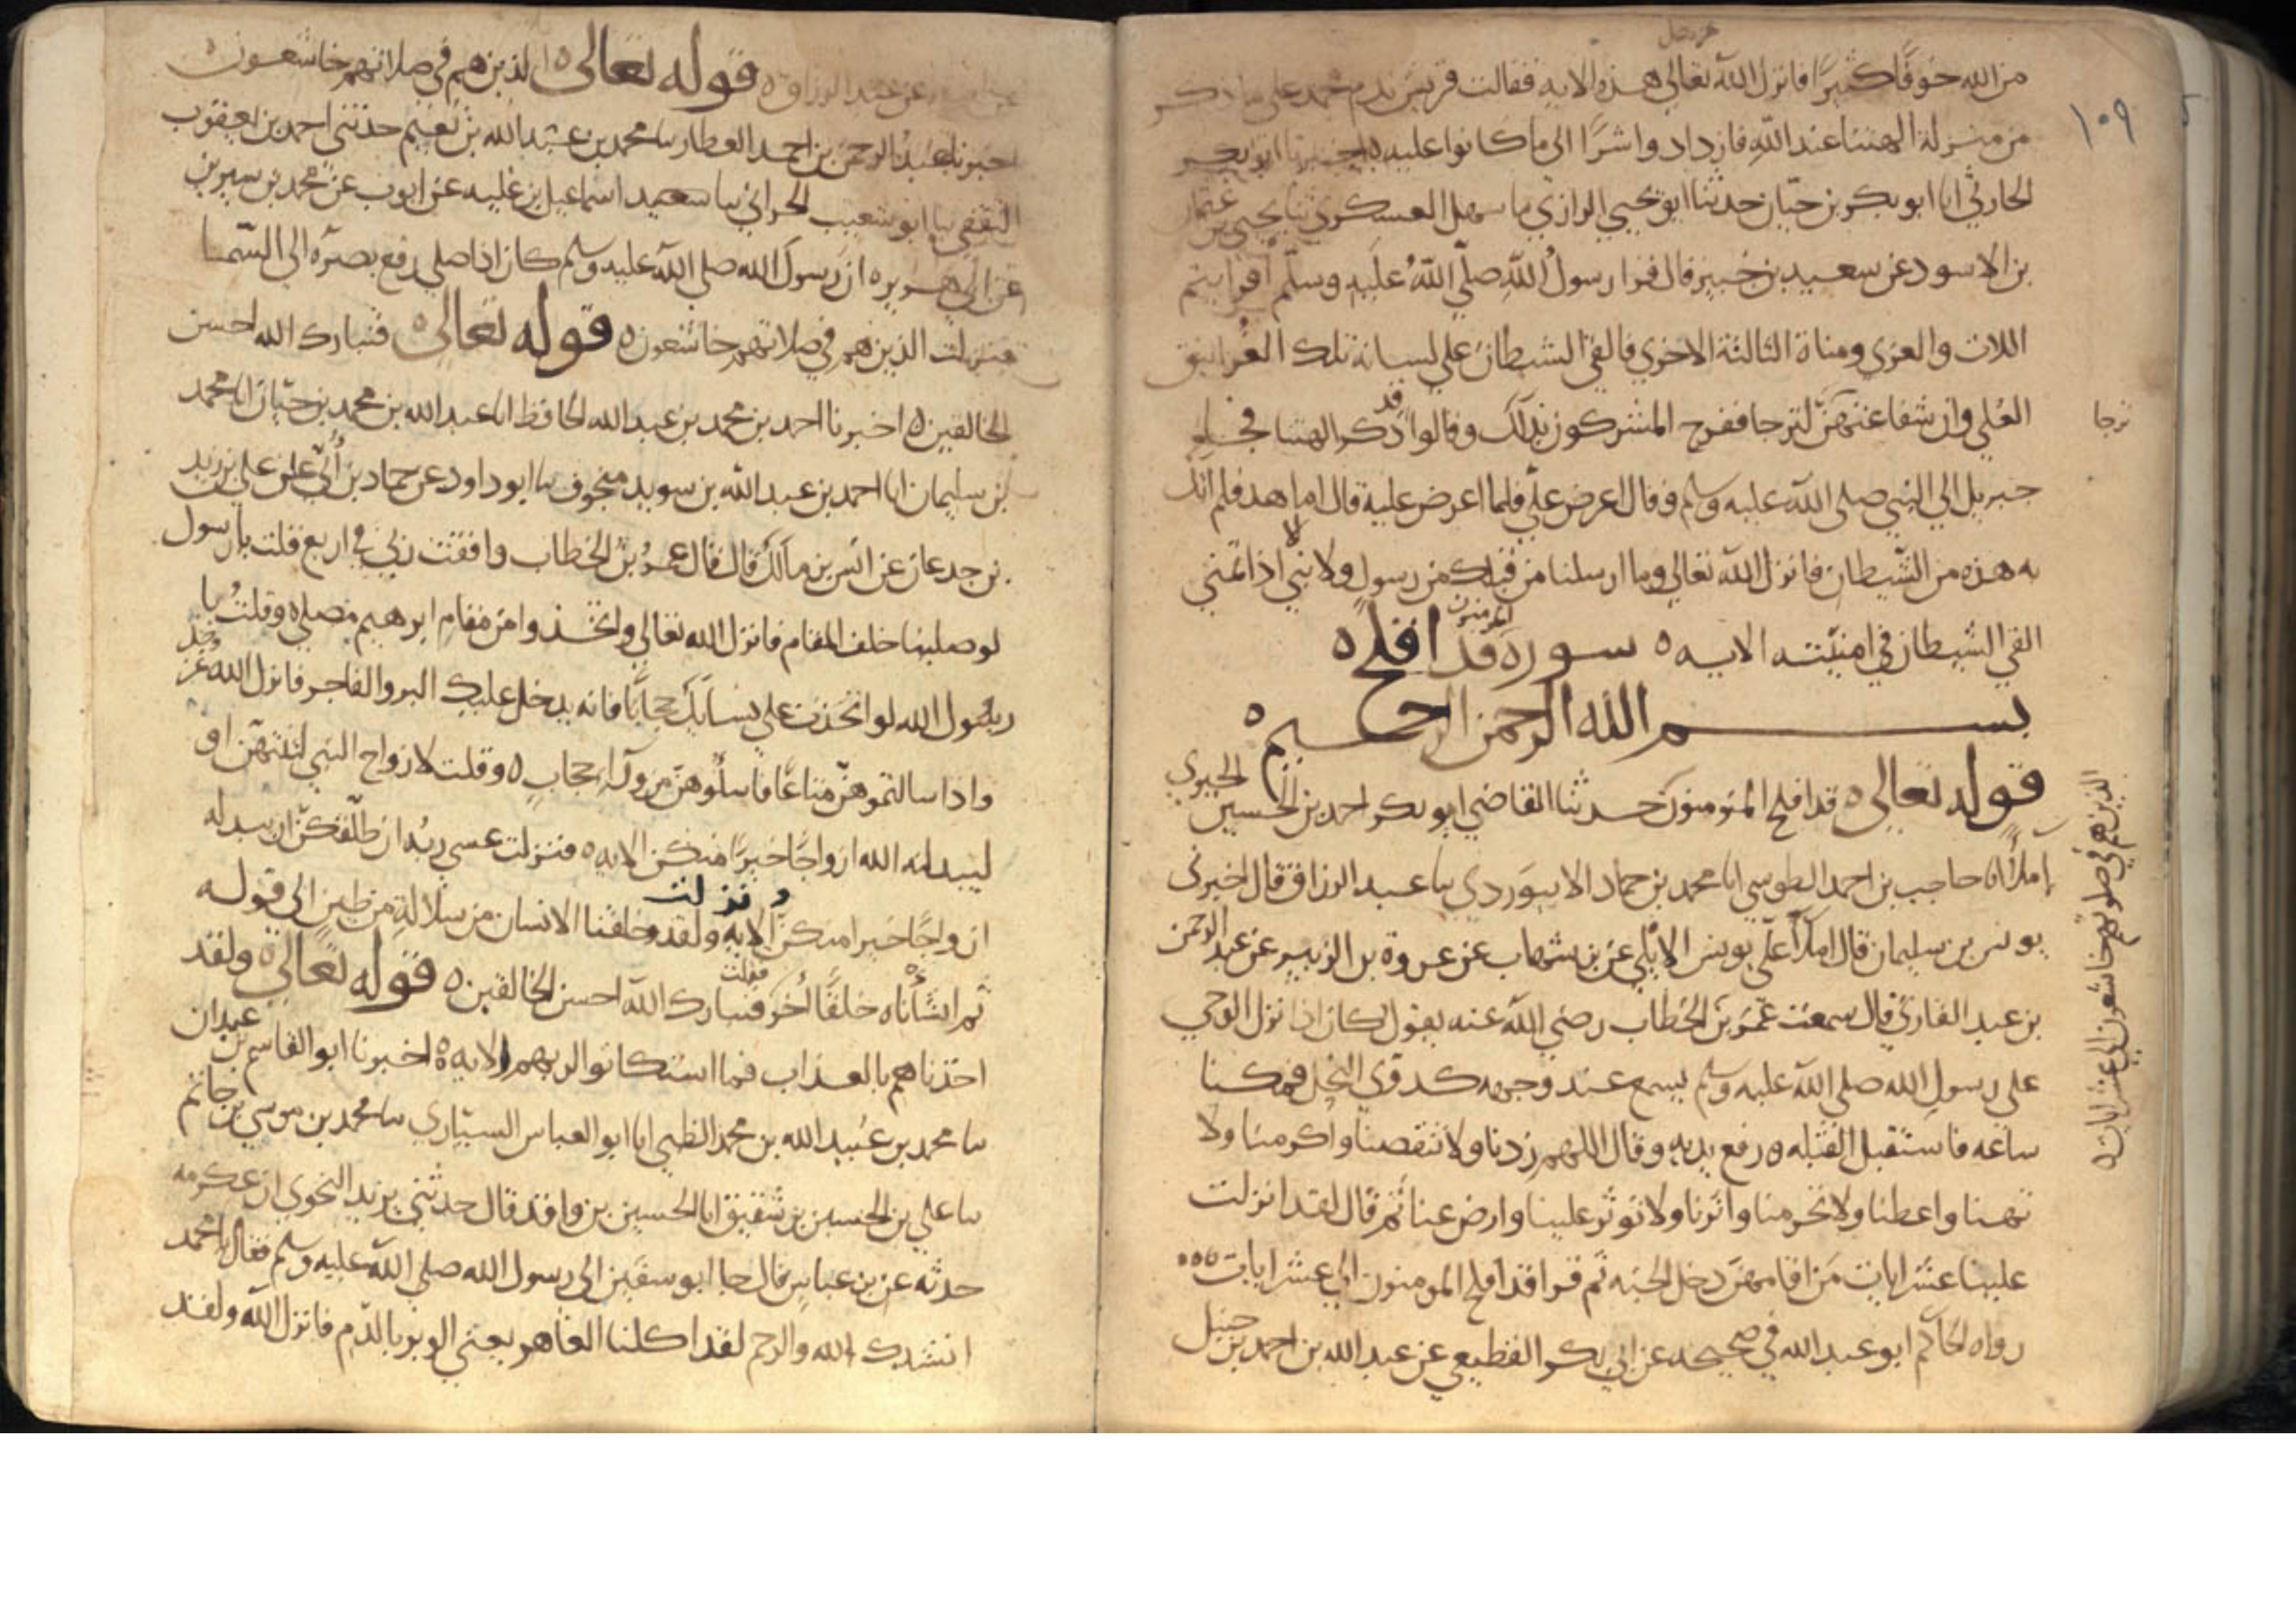 عز وجل
من الله خوفا كثيرا فانزل الله تعالى هذه الايه فقالت قريش ندم محمد على ما ذكر
من منزلة الهتنا عند الله فازدادوا شرا الى ما كانوا عليه ه اخبرنا ابو بكر
الحارثي انا ابو بكر بن حيان حدثنا ابو يحيى الرازي نا سهل العسكري ثنا يحيى عن عثمان
بن الاسود عن سعيد بن جبير قال قرا رسول الله صلى الله عليه وسلم افرايتم
اللات والعزى ومناة الثالثة الاخرى فالقى الشيطان على لسانه تلك الغرانيق
العلى وان شفاعتهن لترجا ففرح المشركون بذلك وقالوا قد ذكر الهتنا فجا
ترجا
جبريل الى النبي صلى الله عليه وسلم وقال اعرض علي فلما اعرض عليه قال اما هذا فلم اتك
به هذه من الشيطان فانزل الله تعالى وما ارسلنا من قبلك من رسول ولا نبي الا اذا تمنى
القى الشيطان في امنيته الايه ه سورة قد افلح المومنون ه
بسم الله الرحمن الرحيم ه
قوله تعالى ه قد افلح المومنون حدثنا القاضي ابو بكر احمد بن الحسين الحيري
املا انا حاجب بن احمد الطوسي انا محمد بن حماد الابيوردي نا عبد الرزاق قال اخبرنى
يونس بن سليمان قال املا علي يونس الايلي عن بن شهاب عن عروة بن الزبير عن عبد الرحمن
بن عبد القاري قال سمعت عمر بن الخطاب رضي الله عنه يقول كان اذا نزل الوحي
على رسول الله صلى الله عليه وسلم يسمع عند وجهه كدوي النحل فمكثنا
ساعه فاستقبل القبله ورفع يديه وقال اللهم زدنا ولا تنقصنا واكرمنا ولا
تهنا واعطنا ولا تحرمنا واثرنا ولا توثر علينا وارض عنا ثم قال لقد انزلت
علينا عشر ايات من اقامهن دخل الجنه ثم قرا قد افلح المومنون الى عشر ايات
رواه الحاكم ابو عبد الله في صحيحه عن ابي بكر القطيعي عن عبد الله بن احمد بن حنبل
الذين هم في صلوتهم خاشعون الى عشر ايات ه
١٠٩
عن ابيه عن عبد الرزاق ه قوله تعالى ه الذين هم في صلاتهم خاشعون ه
اخبرنا عبد الرحمن بن احمد العطار نا محمد بن عبد الله بن نعيم حدثني احمد بن يعقوب
الثقفي نا ابو شعيب الحراني نا سعيد اسماعيل بن عليه عن ايوب عن محمد بن سيرين
عن ابي هريره ان رسول الله صلى الله عليه وسلم كان اذا صلى رفع بصره الى السما
فنزلت الذين هم في صلاتهم خاشعون ه قوله تعالى ه فتبارك الله احسن
الخالقين ه اخبرنا احمد بن محمد بن عبد الله الحافظ انا عبد الله بن محمد بن حيان انا محمد
بن سليمان انا احمد بن عبد الله بن سويد منجوف نا ابو داود عن حماد بن عن علي بن زيد
بن جدعان عن انس بن مالك قال قال عمر بن الخطاب وافقت ربي في اربع قلت يا رسول
لو صلينا خلف المقام فانزل الله تعالى واتخذوا من مقام ابرهيم مصلى ه وقلت يا
رسول الله لو اتخذت على نسايك حجابا فانه يدخل عليك البر والفاجر فانزل الله عز وجل
واذا سالتموهن متاعا فاسلوهن من ورآء حجاب ه وقلت لازواج النبي لتنتهن او
ليبدلنه الله ازواجا خيرا منكن الايه ه فنزلت عسى ربه ان طلقكن ان يبدله
ازواجا خيرا منكن الايه ونزلت ولقد خلقنا الانسان من سلالة من طين الى قوله
ثم انشاناه خلقا اخر فقلت فتبارك الله احسن الخالقين ه قوله تعالى ه ولقد
اخذناهم بالعذاب فما استكانوا لربهم الايه ه اخبرنا ابو القاسم بن عبدان
نا محمد بن عبيد الله بن محمد الظبي انا ابو العباس السياري نا محمد بن موسى بن حاتم
نا علي بن الحسين بن شقيق انا الحسين بن واقد قال حدثني يزيد النحوي ان عكرمه
حدثه عن بن عباس قال جا ابو سفين الى رسول الله صلى الله عليه وسلم فقال يا محمد
انشدك الله والرحم لقد اكلنا العاهر يعني الوبر بالدم فانزل الله ولقد